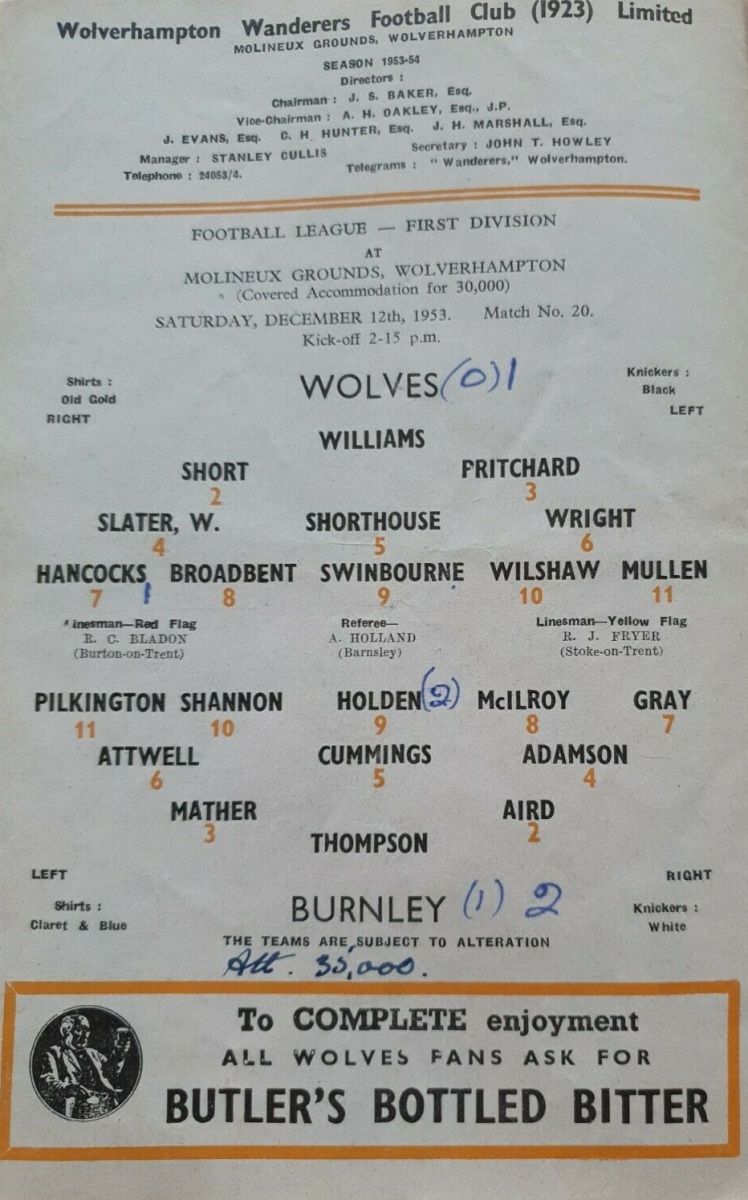 Wolverhampton Wanderers Football Club (1923) Limited
MOLINEUX GROUNDS, WOLVERHAMPTON
SEASON 1953-54
Directors :
Chairman : J. S. BAKER, Esq.
Vice-Chairman : A. H. OAKLEY, Esq., J.P.
J. EVANS, Esq. C. H. HUNTER, Esq. J. H. MARSHALL, Esq.
Manager : STANLEY CULLIS Secretary : JOHN T. HOWLEY
Telephone : 24053/4. Telegrams : "Wanderers," Wolverhampton.
FOOTBALL LEAGUE — FIRST DIVISION
AT
MOLINEUX GROUNDS, WOLVERHAMPTON
(Covered Accommodation for 30,000)
SATURDAY, DECEMBER 12th, 1953. Match No. 20.
Kick-off 2-15 p.m.
Shirts : WOLVES (0) 1 Knickers :
Old Gold Black
RIGHT LEFT
WILLIAMS
SHORT PRITCHARD
2 3
SLATER, W. SHORTHOUSE WRIGHT
4 5 6
HANCOCKS BROADBENT SWINBOURNE WILSHAW MULLEN
7 1 8 9 10 11
Linesman—Red Flag Referee— Linesman—Yellow Flag
R. C. BLADON A. HOLLAND R. J. FRYER
(Burton-on-Trent) (Barnsley) (Stoke-on-Trent)
PILKINGTON SHANNON HOLDEN (2) McILROY GRAY
11 10 9 8 7
ATTWELL CUMMINGS ADAMSON
6 5 4
MATHER AIRD
3 2
THOMPSON
LEFT RIGHT
Shirts : BURNLEY (1) 2 Knickers :
Claret & Blue White
THE TEAMS ARE SUBJECT TO ALTERATION
Att. 35,000.
To COMPLETE enjoyment
ALL WOLVES FANS ASK FOR
BUTLER'S BOTTLED BITTER